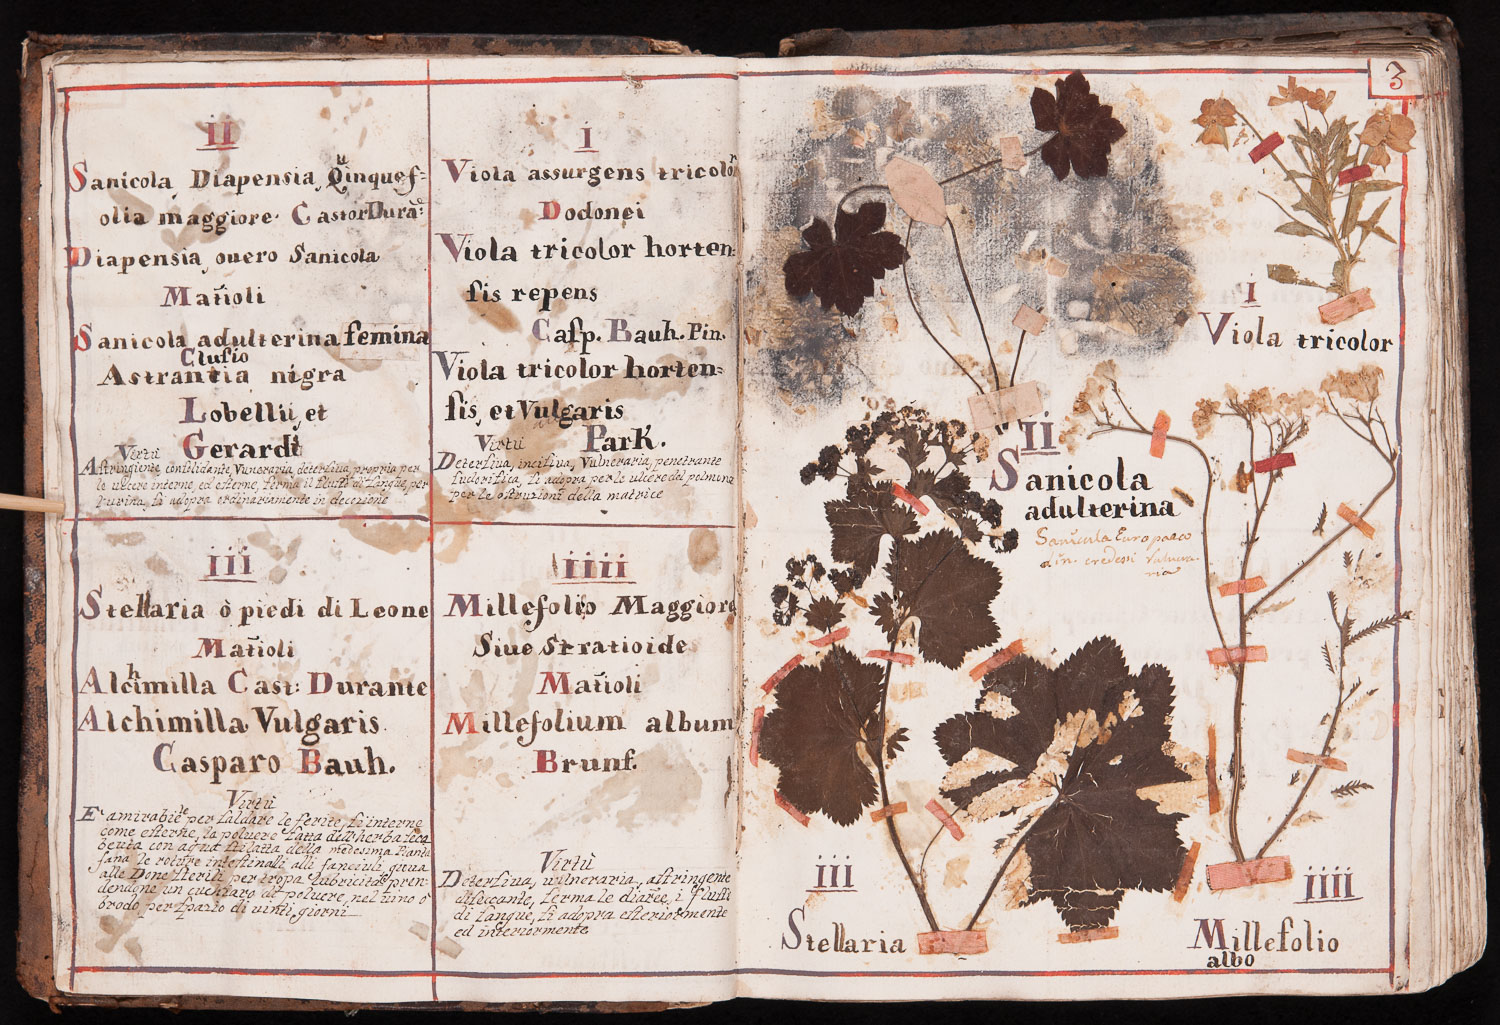 ii
Sanicola Diapensia, Qinquef=
olia maggiore. Castor Dura:
Diapensia, ouero Sanicola
Matioli
Sanicola adulterina femina
Clusio
Astrantia nigra
Lobellii, et
Gerardi
Virtù
Astringiente, consolidante, Vuneraria, detersiua, propria per
le ulcere interne, ed esterne, ferma il flusso di sangue, per
l'urina, si adopra ordinariamente in decozione
i
Viola assurgens tricolor
Dodonei
Viola tricolor horten=
sis repens
Casp. Bauh. Pin.
Viola tricolor horten=
sis, et Vulgaris
Park.
Virtù
Detersiua, incisiua, Vulneraria, penetrante
sudorifica, si adopra per le ulcere del polmone
per le ostruzioni della matrice
iii
Stellaria ò piedi di Leone
Matioli
Alchimilla Cast: Durante
Alchimilla Vulgaris
Casparo Bauh.
Virtù
E' amirabile per saldare le ferite, sì interne
come esterne, la poluere fatta dell'herba secca
beuta con aqua stilatta della medesima Pianta
sana le rotture intestinalli alli fanciuli, gioua
alle Done sterili per tropa lubricità, pren-
dendone un cuchiaro di poluere, nel uino ò
brodo per spazio di uinti giorni
iiii
Millefolio Maggiore
Siue Stratioide
Matioli
Millefolium album
Brunf.
Virtù
Detersiua, vulneraria, astringente
disseccante, ferma le diaree, i flussi
di sangue, si adopra esteriormente
ed interiormente
3
i
Viola tricolor
ii
Sanicola
adulterina
Sanicula Europaea
din. credesi vulnera-
ria
iii
Stellaria
iiii
Millefolio
albo